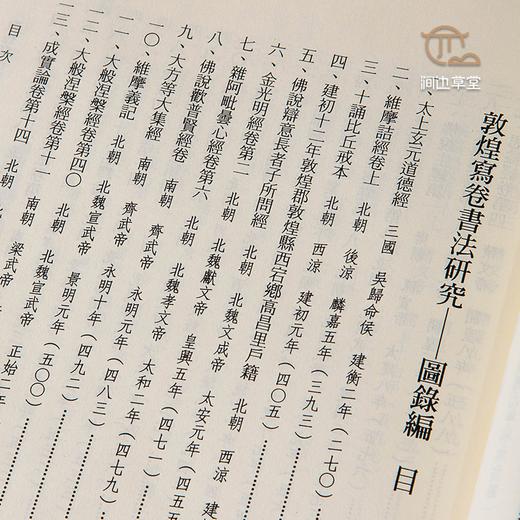 敦煌寫卷書法研究——圖錄編 目
一、太上玄元道德經 三國 吳歸命侯 建衡二年（二七〇）
二、維摩詰經卷上 北朝 後涼 麟嘉五年（三九三）
三、十誦比丘戒本 北朝 西涼 建初元年（四〇五）
四、建初十二年敦煌郡敦煌縣西宕鄉高昌里戶籍 北朝 西涼 建
五、佛說辯意長者子所問經 北朝 北魏文成帝 太安元年（四五五
六、金光明經卷第二 北朝 北魏獻文帝 皇興五年（四七一）
七、雜阿毗曇心經卷第六 北朝 北魏孝文帝 太和二年（四七九
八、佛說歡普賢經卷 南朝 齊武帝 永明元年（四八三）
九、大方等大集經 南朝 齊武帝 永明十年（四九二）
一〇、維摩義記 北朝 北魏宣武帝 景明元年（五〇〇）
一一、大般涅槃經卷第四〇 北朝 北魏宣武帝 正始二年
一二、大般涅槃經卷第十一 南朝 梁武帝
一三、成實論卷第十四 北朝
目次
涧边草堂